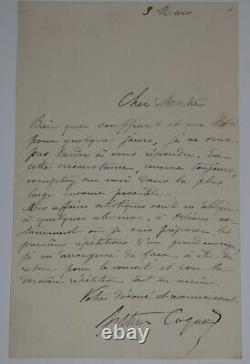 3 Mars
Cher Maître
Bien que souffrant et au lit
pour quelques jours, je ne veux
pas tarder à vous répondre. En
cette circonstance, comme toujours,
comptez sur moi dans la plus
large mesure possible.
Mes affaires artistiques vont m'obliger
à quelques absences, à Orléans no-
tamment où je vais préparer les
premières répétitions d'un grand ouvrage
je m'arrangerai de façon à être de
retour pour le concert et pour la
dernière répétition tout au moins.
Votre dévoué et reconnaissant
Arthur Coquard